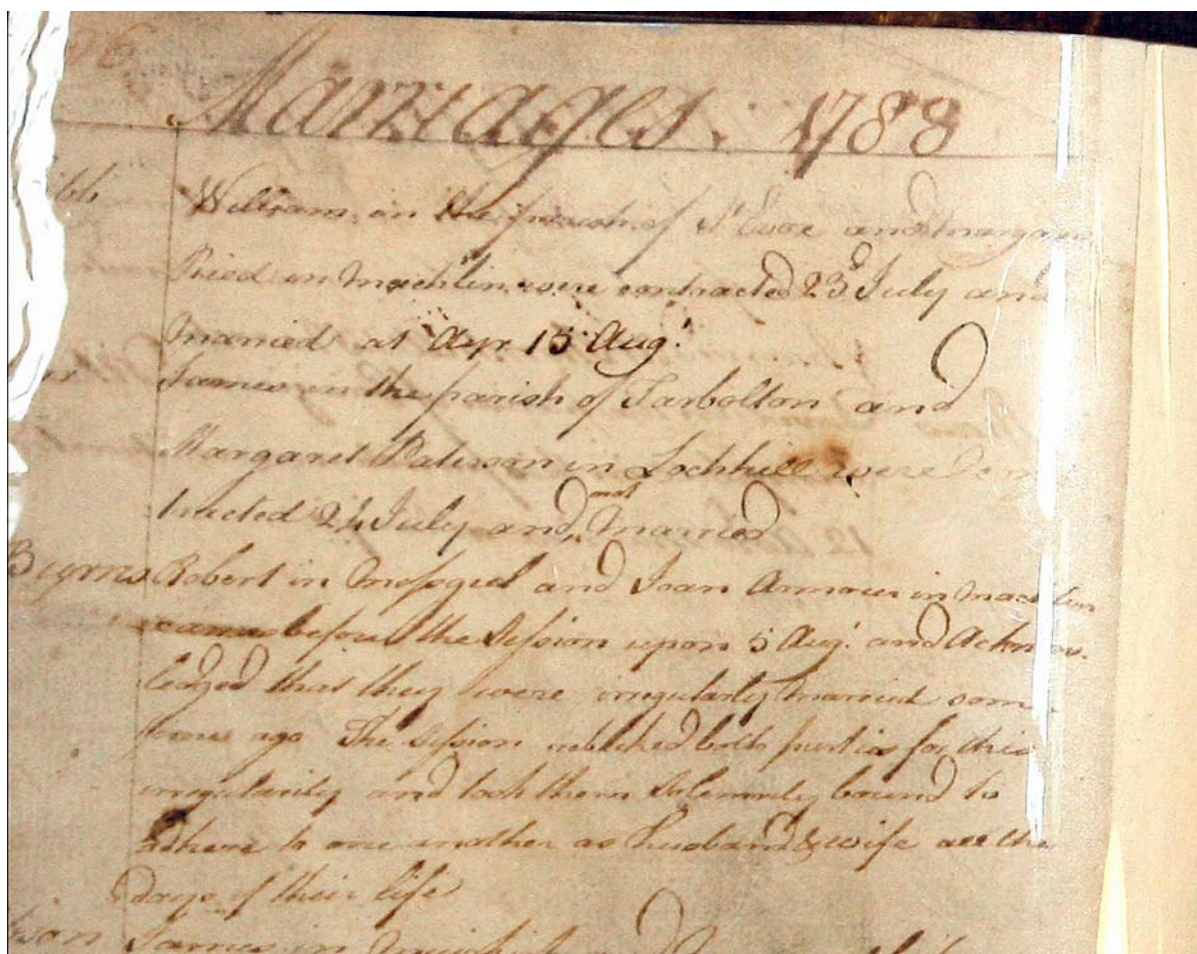 Marriages. 1788
William in the parish of St Evox and Margaret
Ried in Machlin were contracted 23d July and
married at Ayr 15 Augt
James in the parish of Tarbolton and
Margaret Paterson in Lochhill were Con
tracted 24 July and not Married
Burns Robert in Mossgiel and Jean Armour in Machlin
came before the Session upon 5 Augt. and Acknow.
ledged that they were irregularly married some
years ago The Session rebuked both parties for this
irregularity and took them Solemnly bound to
adhere to one another as Husband & wife all the
days of their life
James in